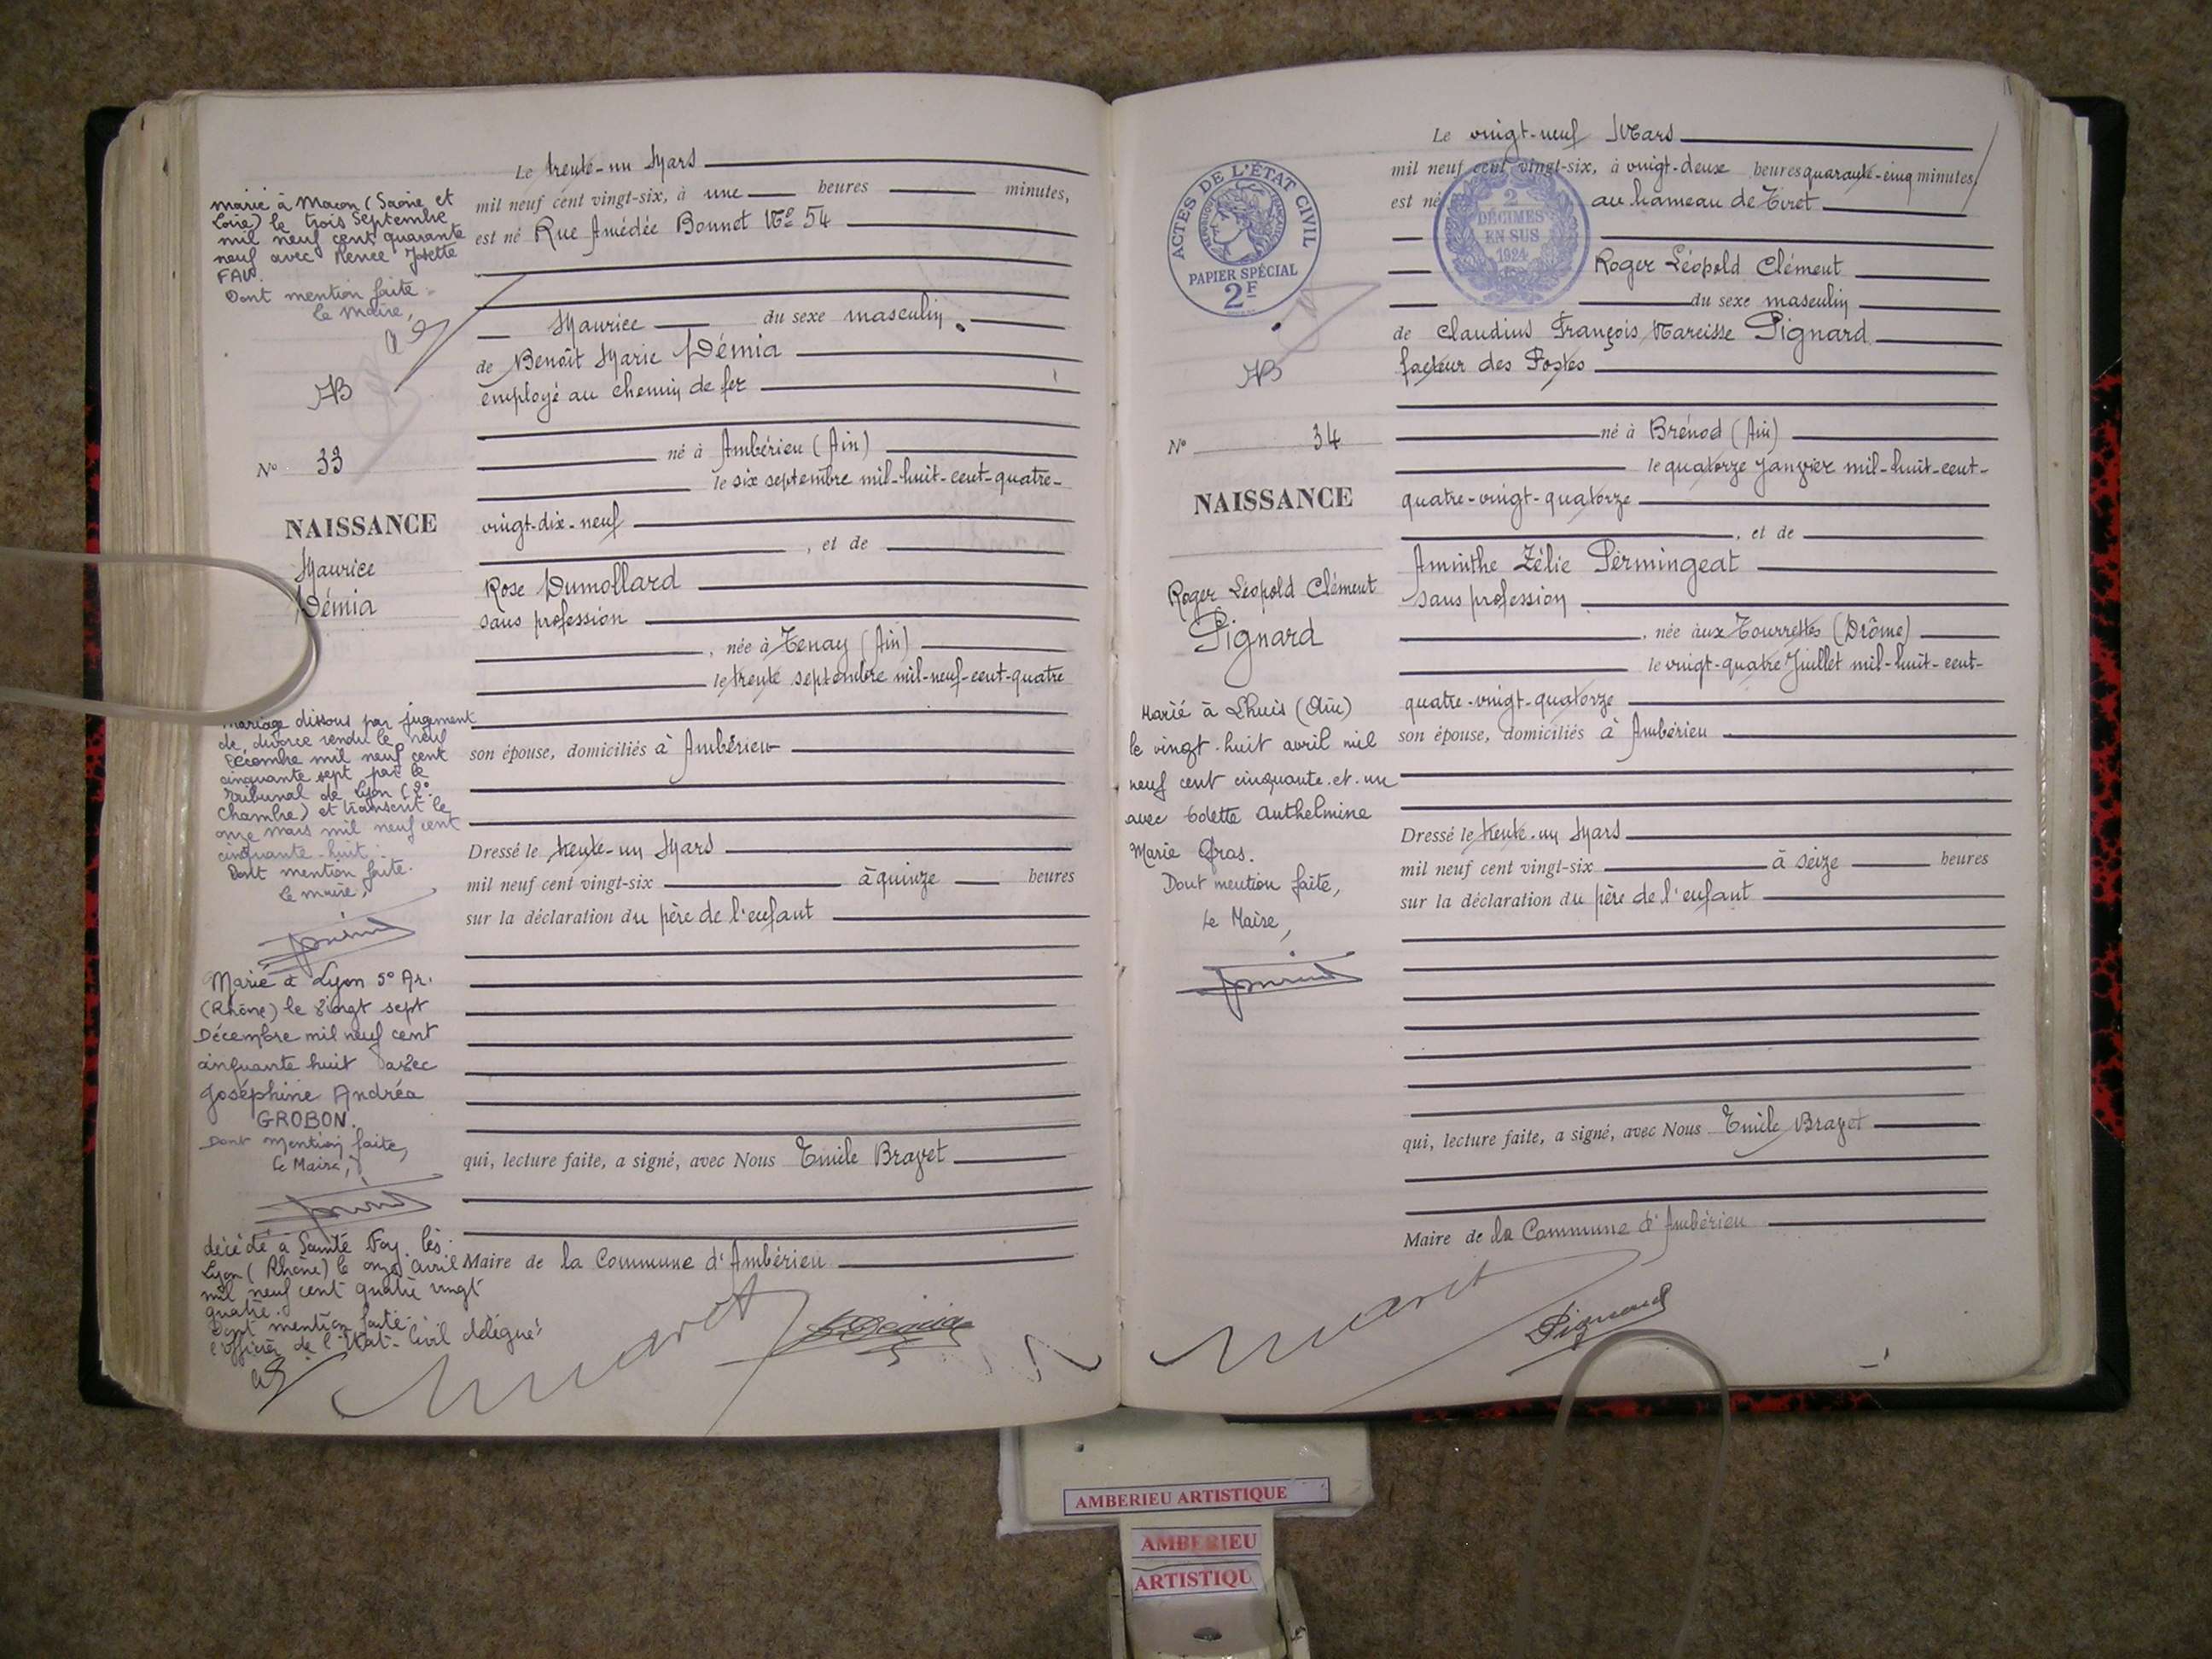 Le trente-un Mars
mil neuf cent vingt-six, à une heures minutes,
est né Rue Amédée Bonnet No 54
Maurice du sexe masculin
de Benoît Marie Démia
employé au chemin de fer
né à Ambérieu (Ain)
le six septembre mil-huit-cent-quatre-
vingt-dix-neuf
, et de
Rose Dumollard
sans profession
, née à Tenay (Ain)
le trente septembre mil-neuf-cent-quatre
son épouse, domiciliés à Ambérieu
Dressé le trente-un Mars
mil neuf cent vingt-six à quinze heures
sur la déclaration du père de l'enfant
qui, lecture faite, a signé, avec Nous Emile Bravet
Maire de la Commune d'Ambérieu
marié à Macon (Saône et
Loire) le trois Septembre
mil neuf cent quarante
neuf avec Renée Josette
FAU.
Dont mention faite
Le Maire,
No 33
NAISSANCE
Maurice
Démia
Mariage dissous par jugement
de divorce rendu le neuf
Décembre mil neuf cent
cinquante sept par le
Tribunal de Lyon (2°
Chambre) et transcrit le
onze mars mil neuf cent
cinquante-huit.
Dont mention faite.
Le maire,
Marié à Lyon 5° Ar.
(Rhône) le vingt sept
Décembre mil neuf cent
cinquante huit avec
Joséphine Andréa
GROBON.
Dont mention faite,
Le Maire,
décédé à Sainte Foy les
Lyon (Rhône) le onze avril
mil neuf cent quatre vingt
quatre.
Dont mention faite.
l'officier de l'Etat-Civil délégué
Le vingt-neuf Mars
mil neuf cent vingt-six, à vingt-deux heures quarante-cinq minutes,
est né au hameau de Tiret
Roger Léopold Clément
du sexe masculin
de Claudius François Narcisse Pignard
facteur des Postes
né à Brénod (Ain)
le quatorze Janvier mil-huit-cent-
quatre-vingt-quatorze
, et de
Aminthe Zélie Permingeat
sans profession
, née aux Tourrettes (Drôme)
le vingt-quatre Juillet mil-huit-cent-
quatre-vingt-quatorze
son épouse, domiciliés à Ambérieu
Dressé le trente-un Mars
mil neuf cent vingt-six à seize heures
sur la déclaration du père de l'enfant
qui, lecture faite, a signé, avec Nous Emile Bravet
Maire de la Commune d'Ambérieu
Pignard
ACTES DE L'ÉTAT CIVIL
PAPIER SPÉCIAL
2F
2
DÉCIMES
EN SUS
1924
No 34
NAISSANCE
Roger Léopold Clément
Pignard
Marié à Lhuis (Ain)
le vingt-huit avril mil
neuf cent cinquante et un
avec Odette Anthelmine
Marie Gras.
Dont mention faite,
Le Maire,
AMBERIEU ARTISTIQUE
AMBERIEU
ARTISTIQU